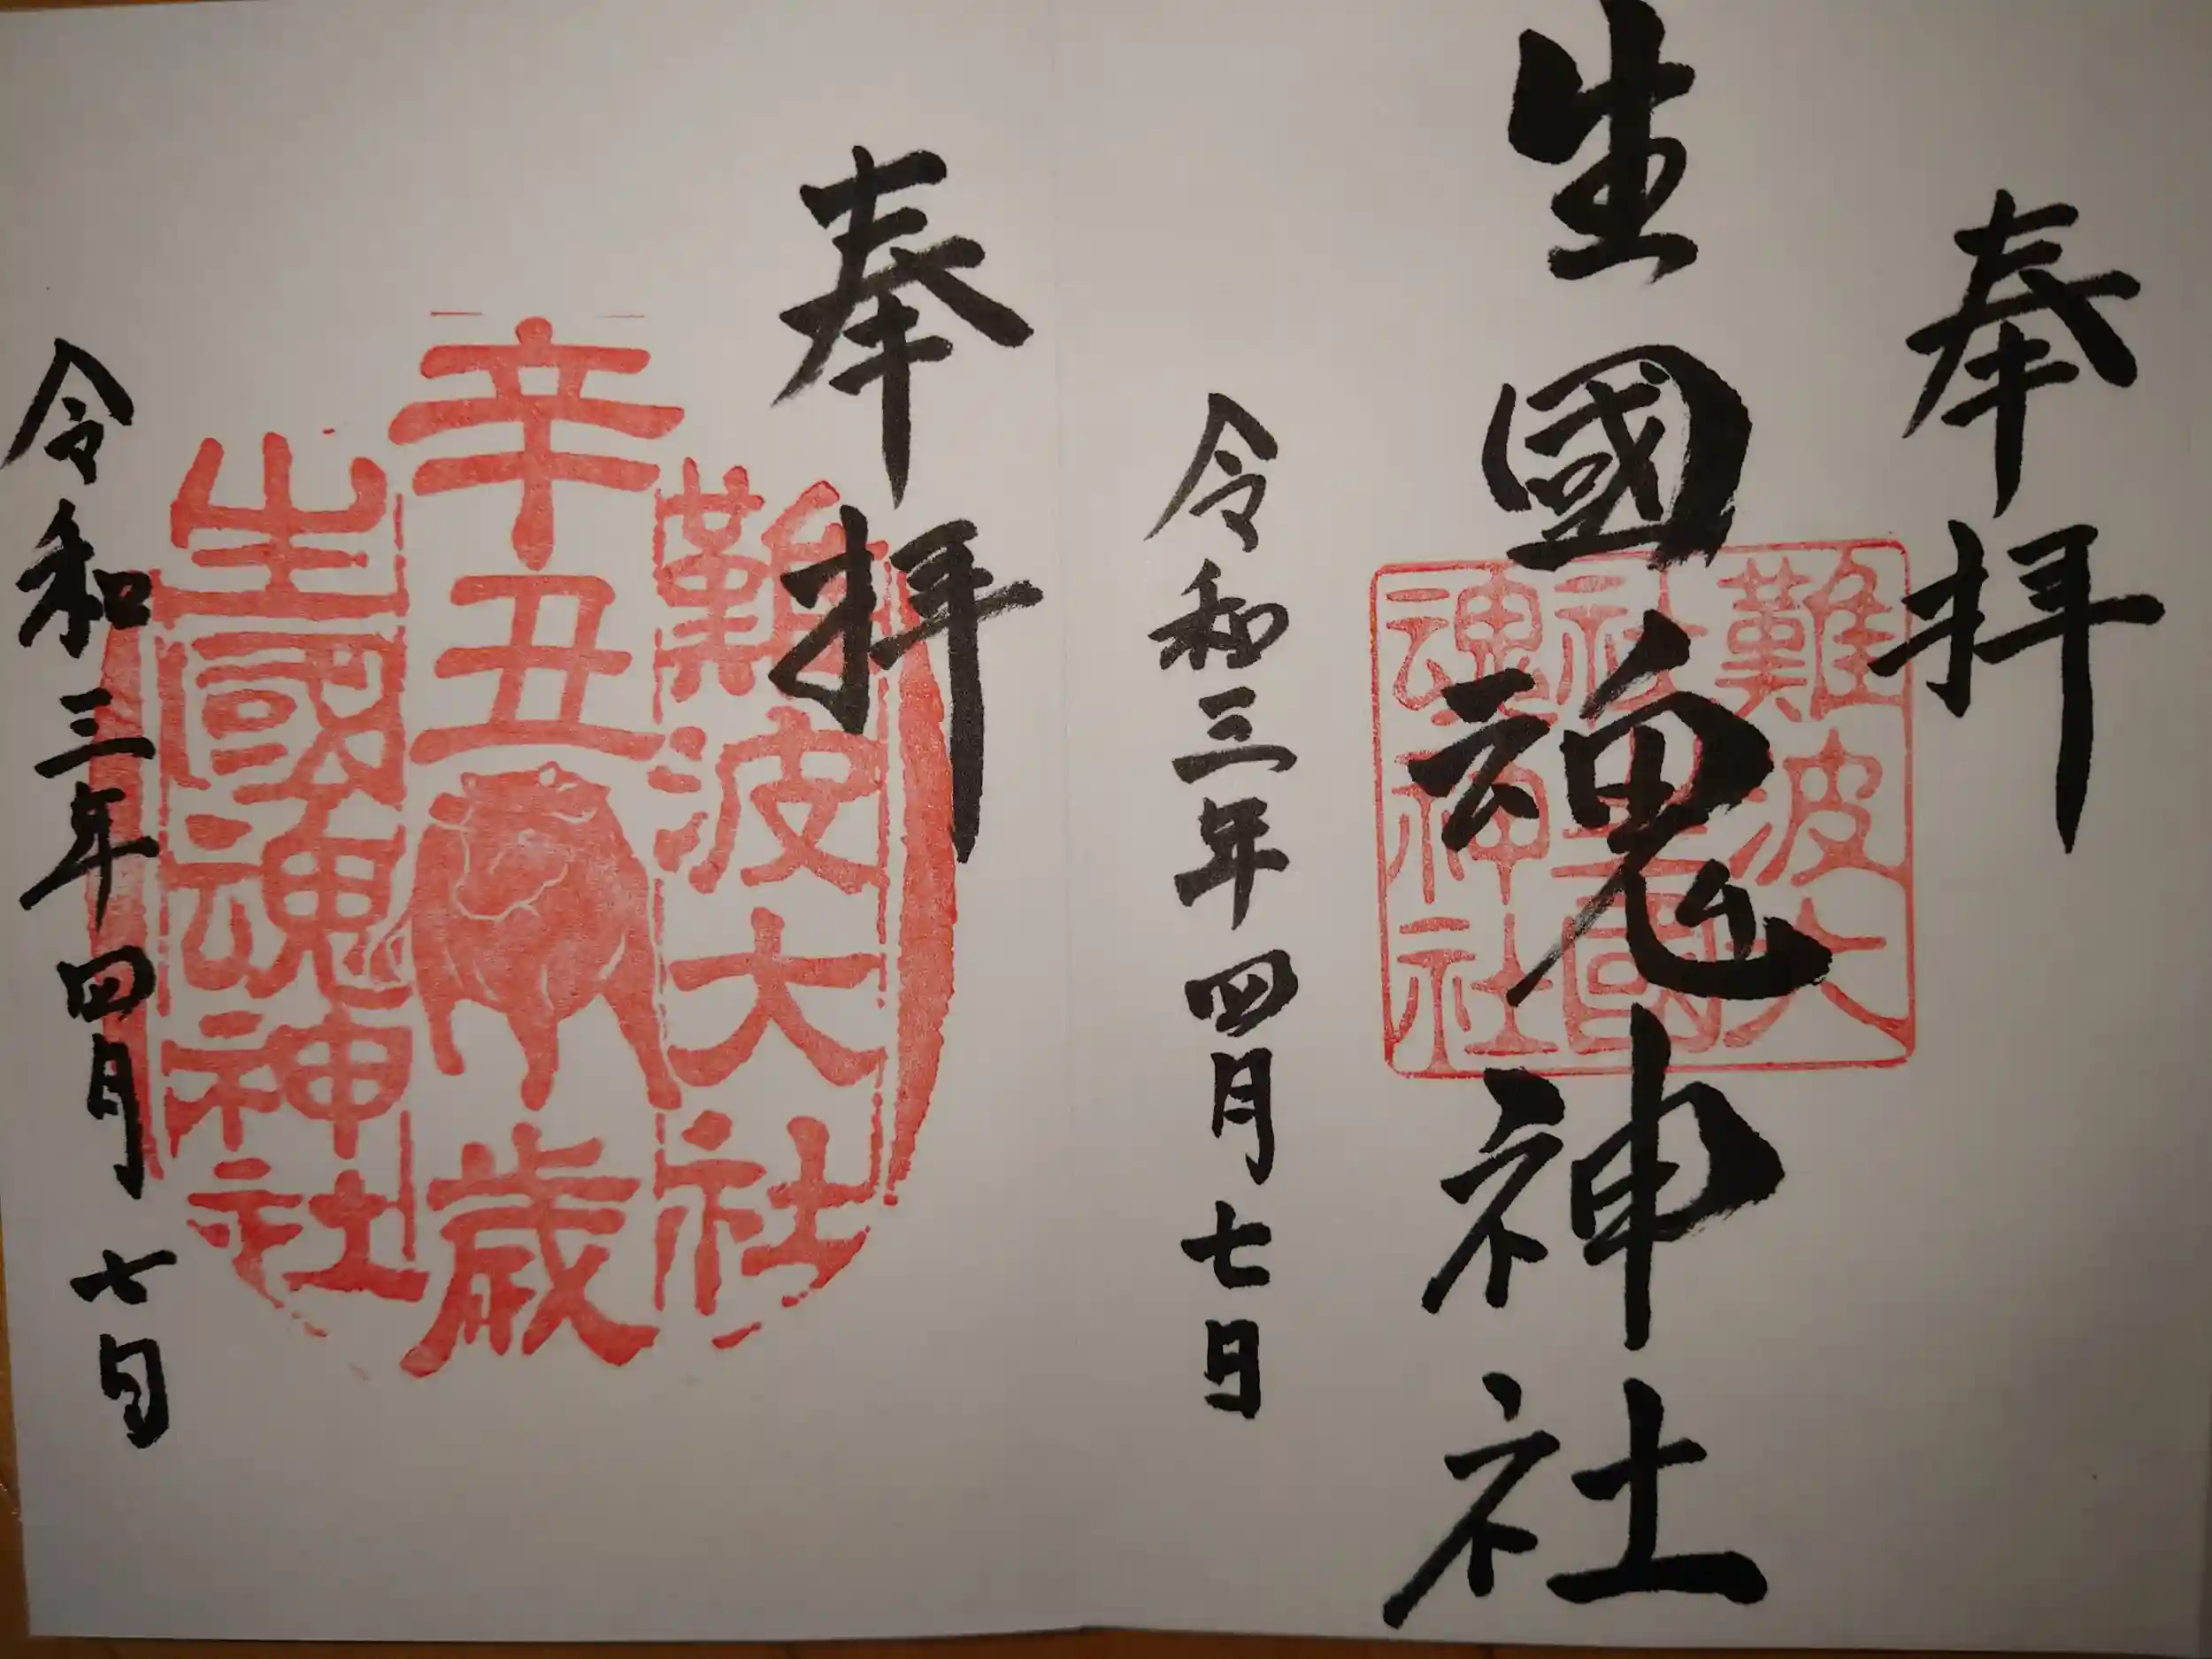 奉拝
生國魂神社
難波大
社生國
魂神社
令和三年四月七日
奉拝
難波大社
辛丑歳
生國魂神社
令和三年四月七日